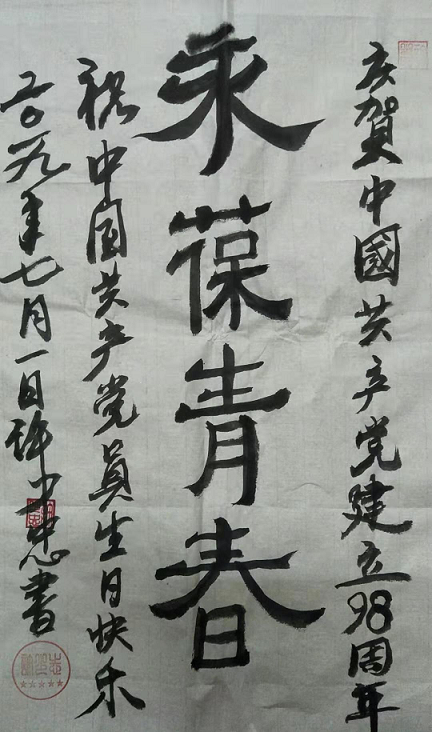 庆賀中國共产党建立98周年
永葆青春
祝中国共产党員生日快乐
二〇一九年七月一日許中忠書